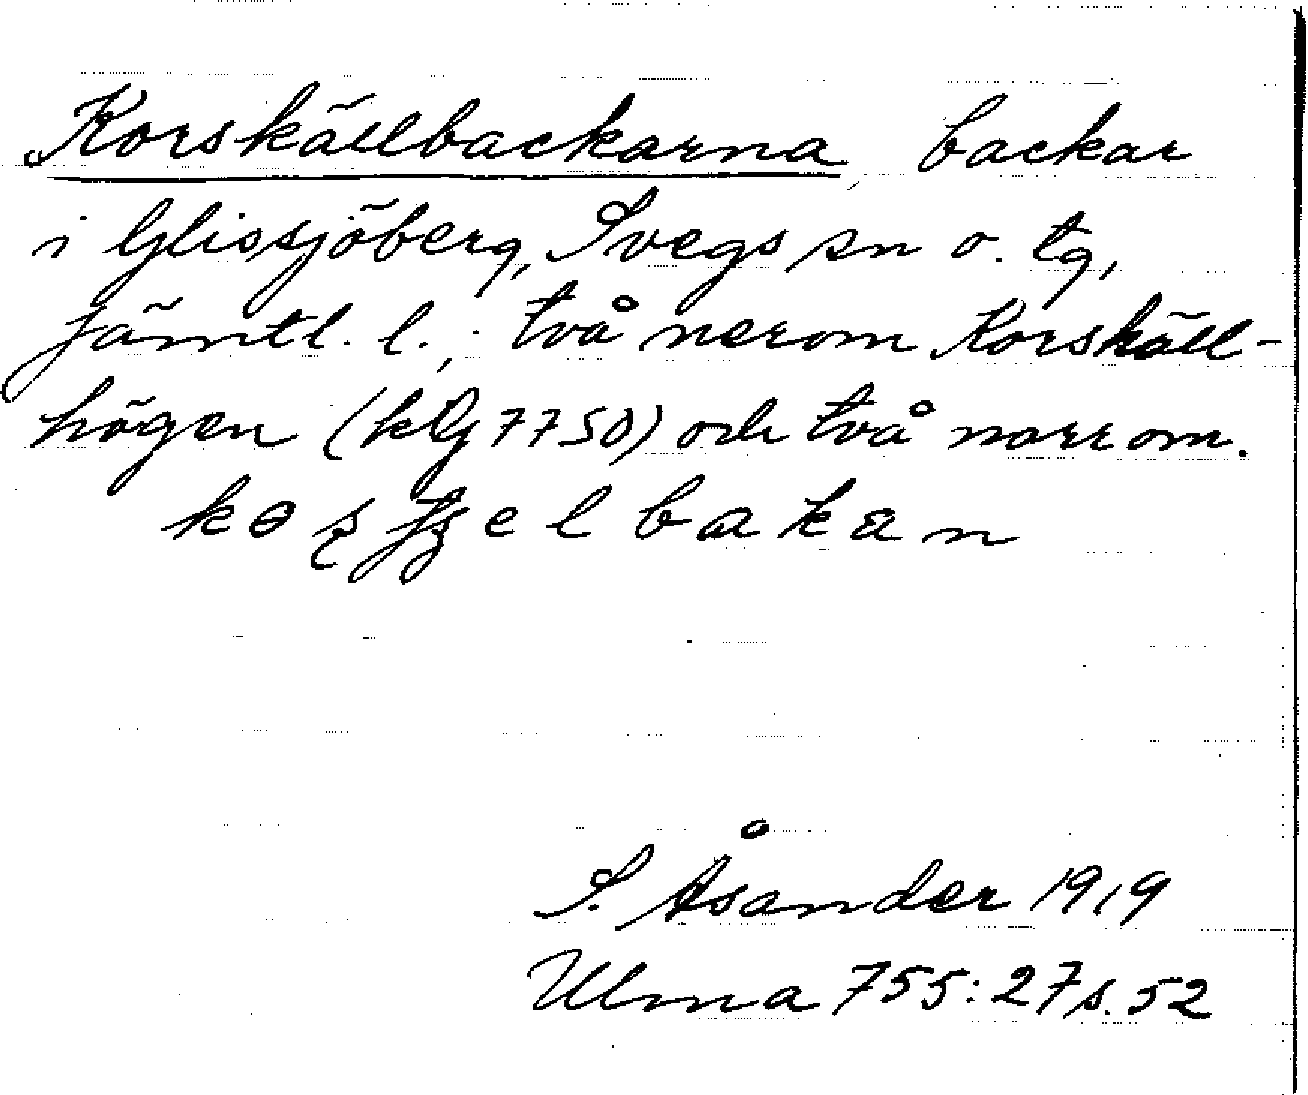 Korskällbackarna, backar
i Glissjöberg, Svegs sn o. tg,
Jämtl. l.; två nerom Korskäll-
högen (kG 7750) och två norrom.
S. Åsander 1919
Ulma 755:27 s. 52